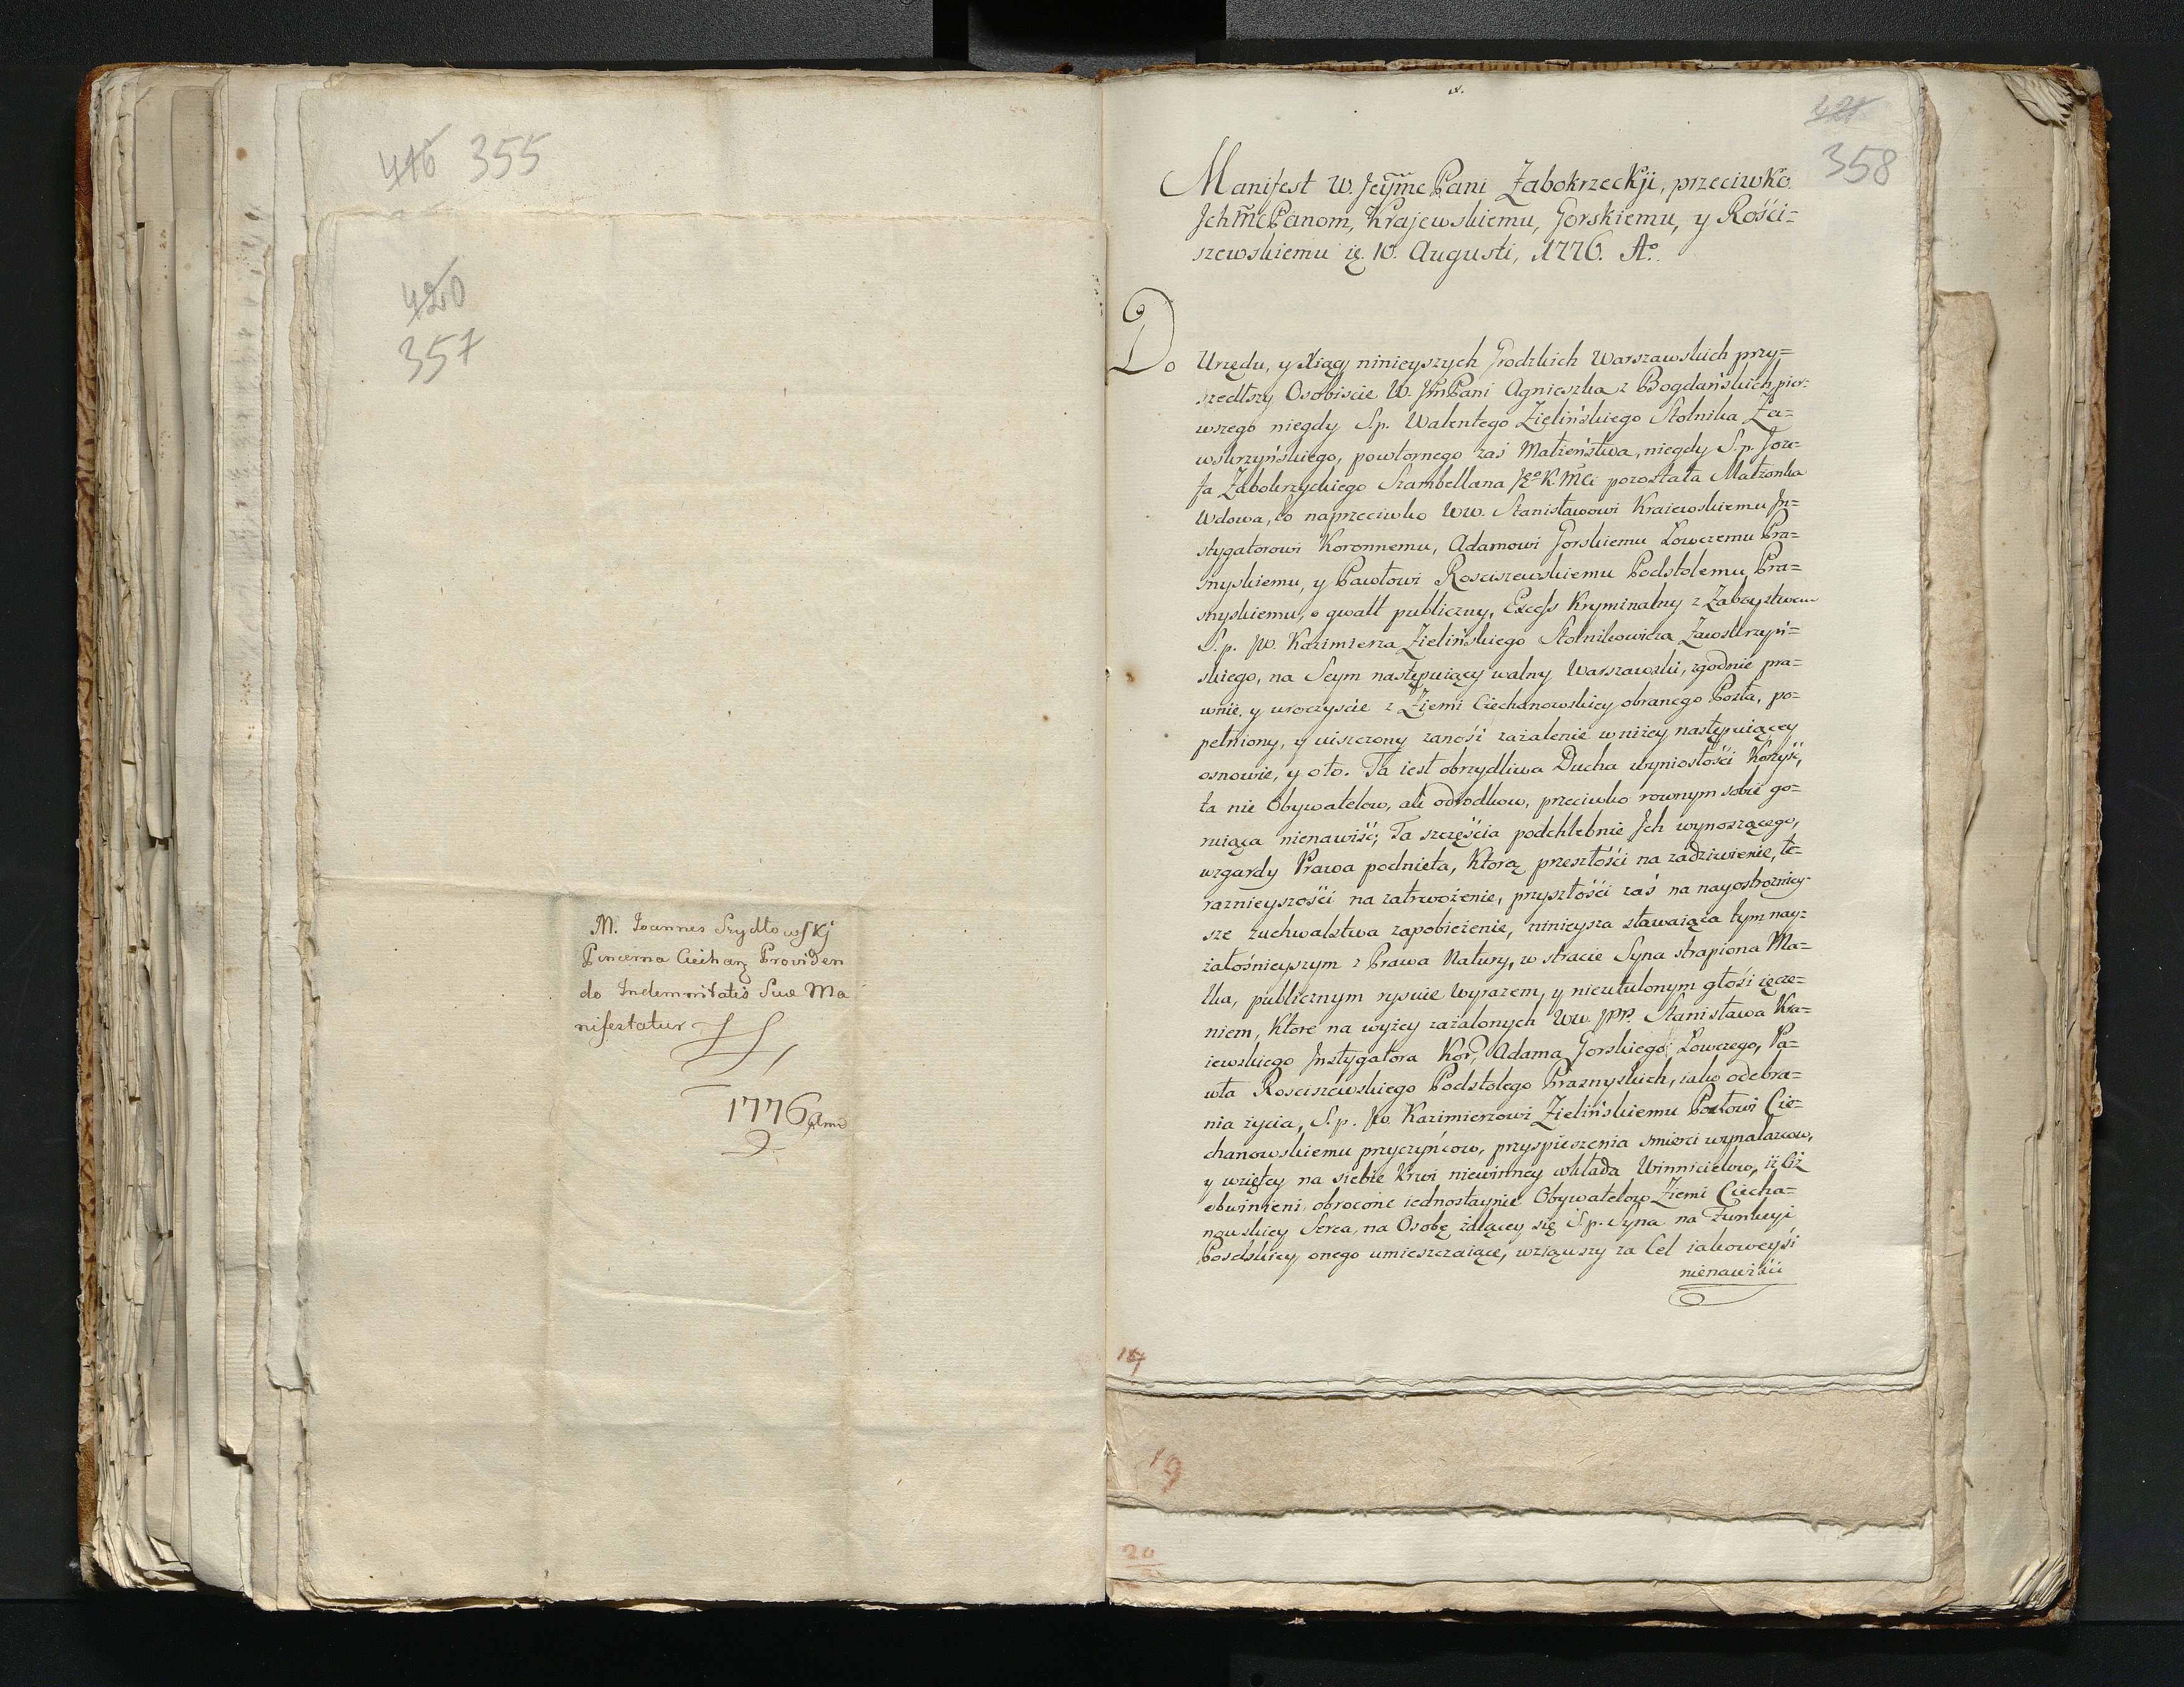 416 355
420
357
M. Joannes Szydłowskj
Pincerna Ciechan Providen
do Indemnitatis Sue Ma
nifestatur
1776 Anno
421
358
Manifest W. Jeymc Pani Zabokrzeckji, przeciwko
Jchmc Panom, Krajewskiemu, Gorskiemu, y Rości=
szewskiemu 10. Augusti, 1776. Ao.
Do Urzędu, y Xiąg ninieyszych Grodzkich Warszawskich przy=
szedłszy Osobiscie W. Jm Pani Agnieszka z Bogdańskich pier=
wszego niegdy Sp. Walentego Zielińskiego Stolnika Za=
wskrzyńskiego, powtornego zas Małżeństwa, niegdy S. p. Joze=
fa Zabokrzyckiego Szambellana JKo K. Mci pozostała Małzonka
Wdowa, to naprzeciwko WW. Stanisławowi Kraiewskiemu In=
stygatorowi Koronnemu, Adamowi Gorskiemu Łowczemu Pra=
snyskiemu, y Pawłowi Rosciszewskiemu Podstolemu Pra=
snyskiemu, o gwałt publiczny, Excess Kryminalny z Zaboystwem
S. p. JW. Kazimierza Zielińskiego Stolnikowicza Zawskrzyń=
skiego, na Seym następuiący walny Warszawski, zgodnie pra=
wnie, y uroczyscie z Ziemi Ciechanowskiey obranego Posła, po=
pełniony, y uiszczony zanosi zażalenie w niżey następuiącey
osnowie, y oto. Ta iest obrzydliwa Ducha wyniosłości Korzyść,
ta nie Obywatelow, ale odrodkow, przeciwko rownym sobie go=
ruiąca nienawiść; Ta szczęścia podchlebnie Jch wynoszącego,
wzgardy Prawa podnieta, Ktorą przeszłości na zadziwienie, te=
raznieyszości na zatrwożenie, przyszłości zaś na nayostroznicy=
sze zuchwalstwa zapobieżenie, ninieysza stawaiąca tym nay=
żałośnieyszym z Prawa Natury, w stracie Syna strapiona Ma=
tka, publicznym rysuie wyrazem, y nieutulonym głosi ięcze=
niem, Ktore na wyżey zażalonych WW. JPP. Stanisława Kra=
iewskiego Instygatora Kor, Adama Gorskiego Łowczego, Pa=
wła Rosciszewskiego Podstolego Prasnyskich, iako odebra=
nia życia, S. p. JW. Kazimierzowi Zielińskiemu Posłowi Cie=
chanowskiemu przyczyńcow, przyspieszenia smierci wynalazcow,
y wziętey na siebie Krwi niewinney wkłada Winnicielow, iż Ciż
obwinieni, obrocone iednostaynie Obywatelow Ziemi Ciecha=
nowskiey Serca, na Osobę żalącey się S. p. Syna na Funkcyi
Poselskiey onego umieszczaiące, wziąwszy za Cel iakoweyśi
nienawiści
19
20